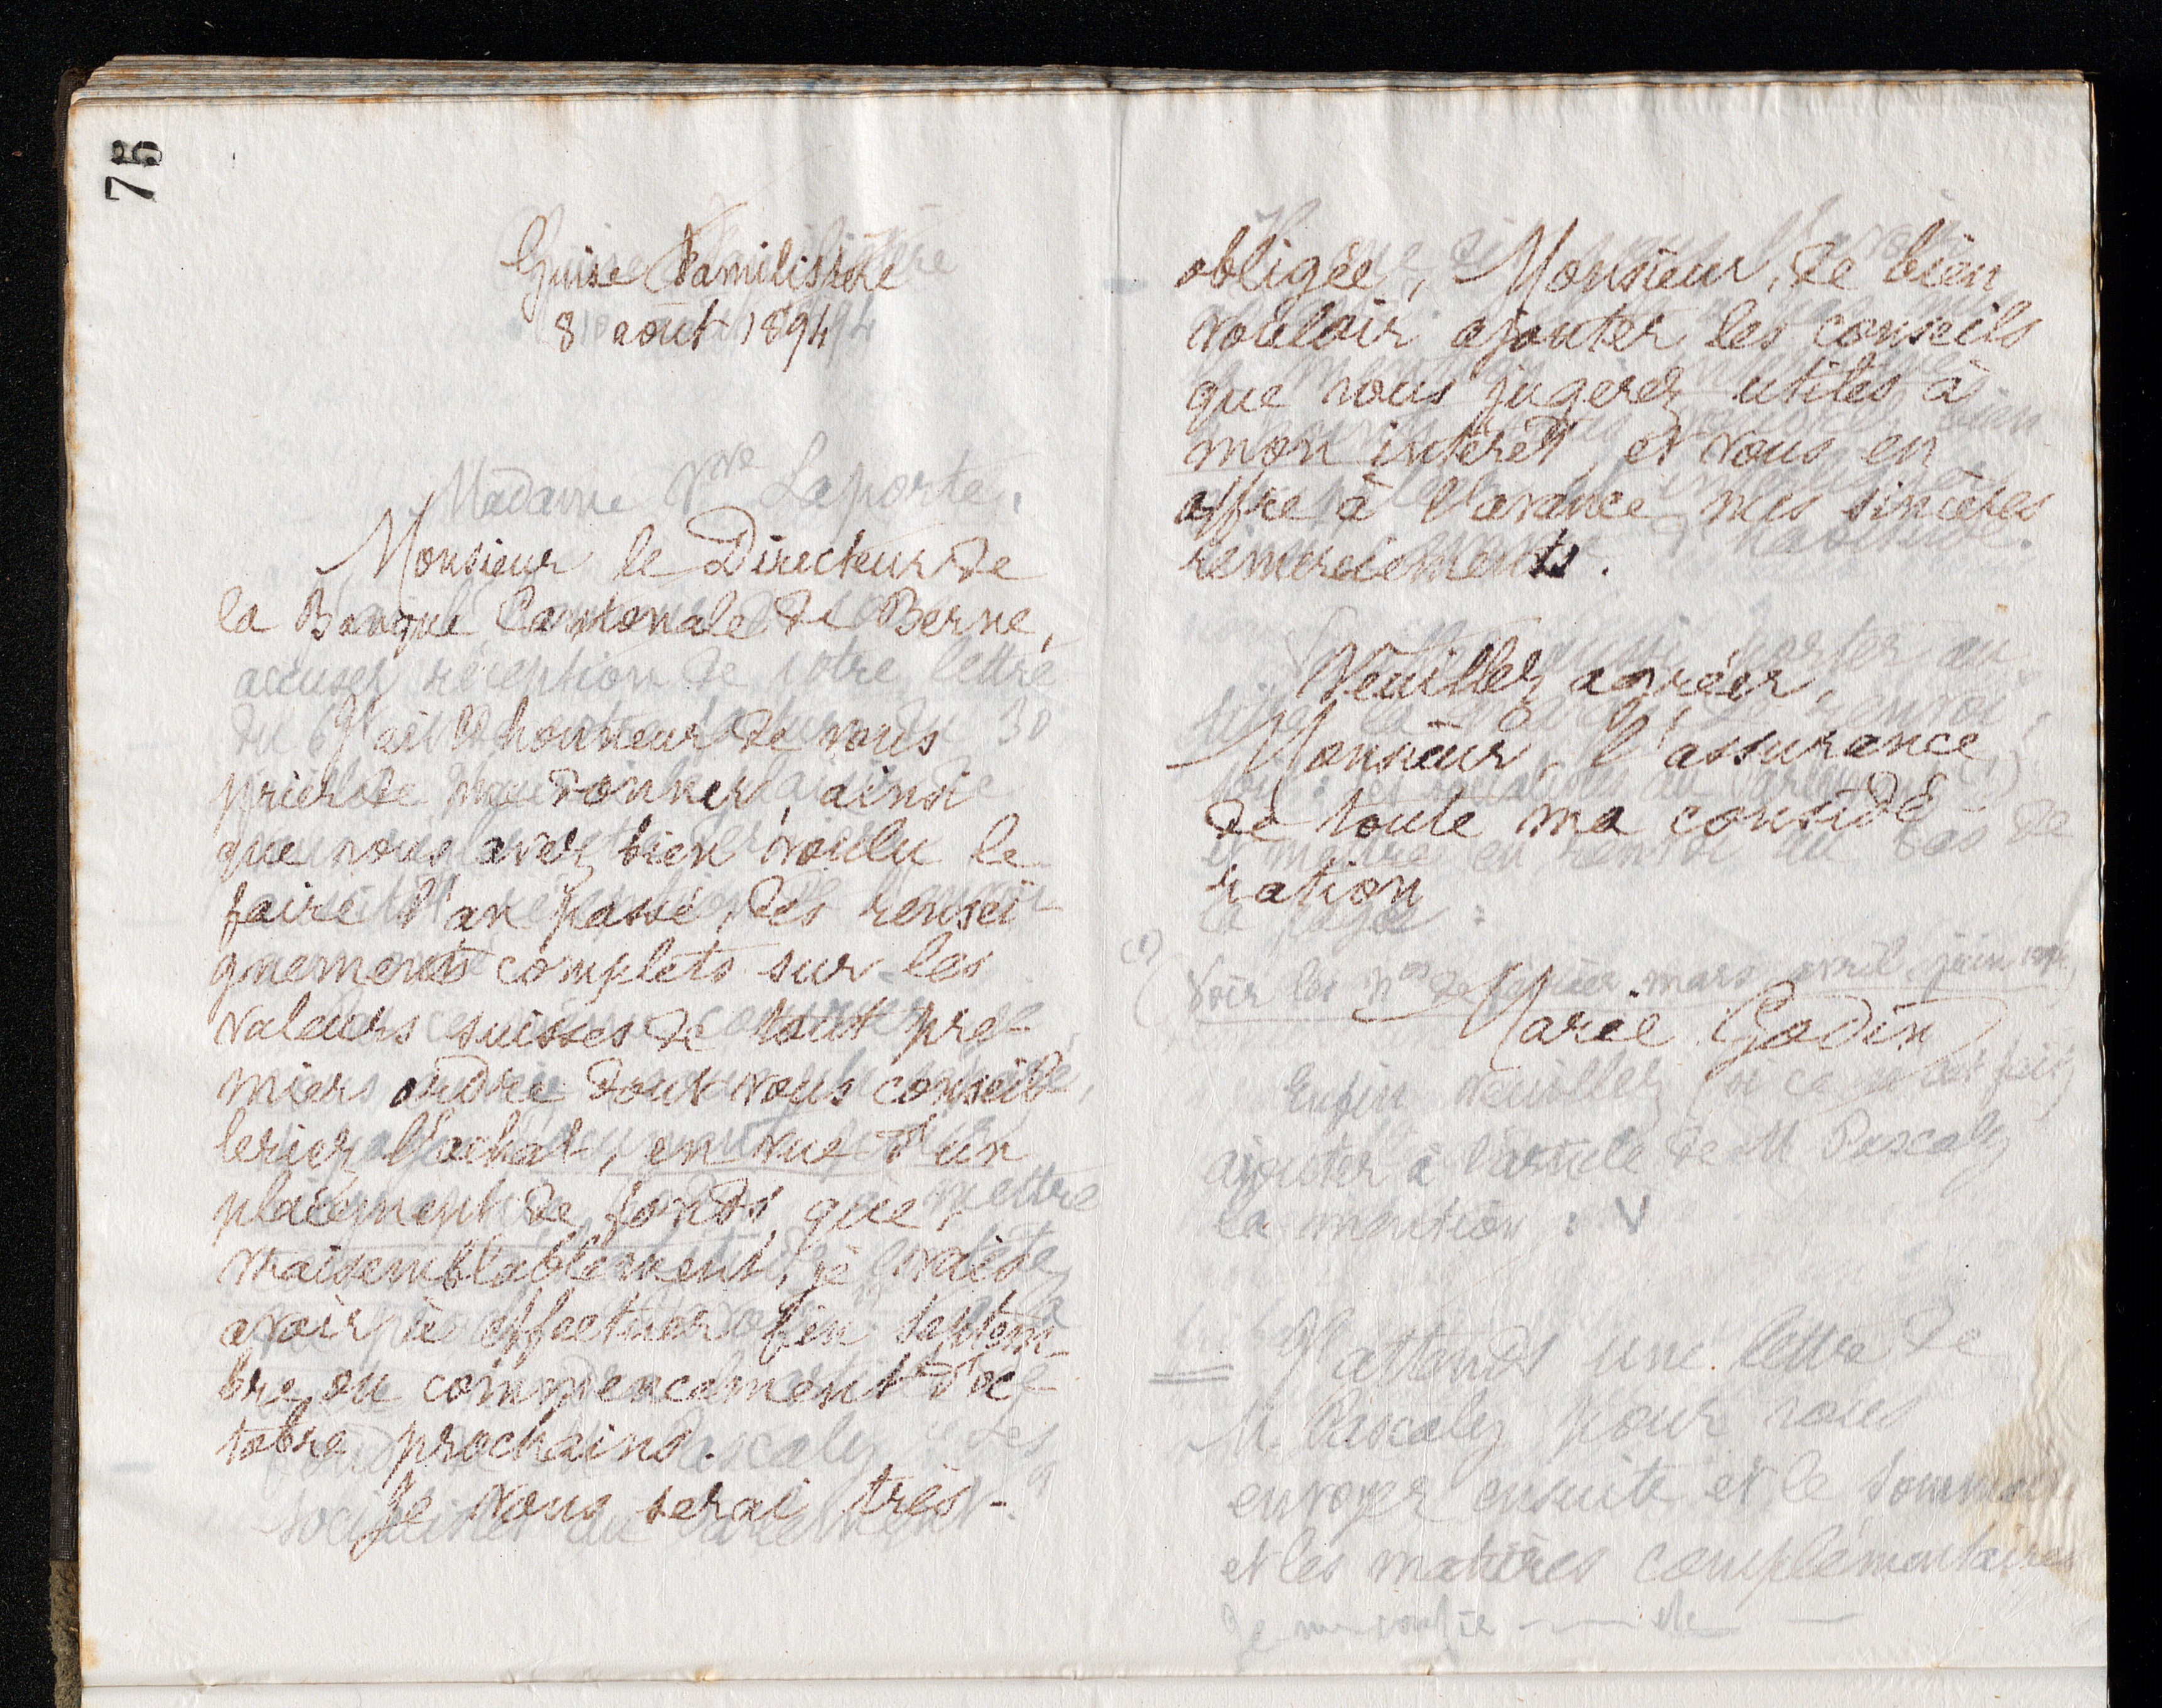 75
Guise Familistère
8 août 1894
Monsieur le Directeur de
la Banque Cantonale de Berne,
J'ai l'honneur de vous
prier de me donner, ainsi
que vous avez bien voulu le
faire l'an passé, des rensei-
gnements complets sur les
valeurs suisses de tout pre-
mier ordre dont vous conseil-
leriez l'achat, en vue d'un
placement de fonds que,
vraisemblablement, je vais
avoir à effectuer fin septem-
bre ou commencement d'oc-
tobre prochains.
Je vous serai très-
obligée, Monsieur, de bien
vouloir ajouter les conseils
que vous jugerez utiles à
mon intérêt, et vous en
offre à l'avance mes sincères
remerciements.
Veuillez agréer,
Monsieur, l'assurance
de toute ma considé-
ration
Marie Godin
Madame Vve Laporte,
accuser réception de votre lettre
Voir les nos de février mars avril juin
Enfin veuillez
ajouter à l'article de M Pascaly
la mention : V
J'attends une lettre de
M. Pascaly pour vous
envoyer ensuite et le sommaire
et les matières complémentaires